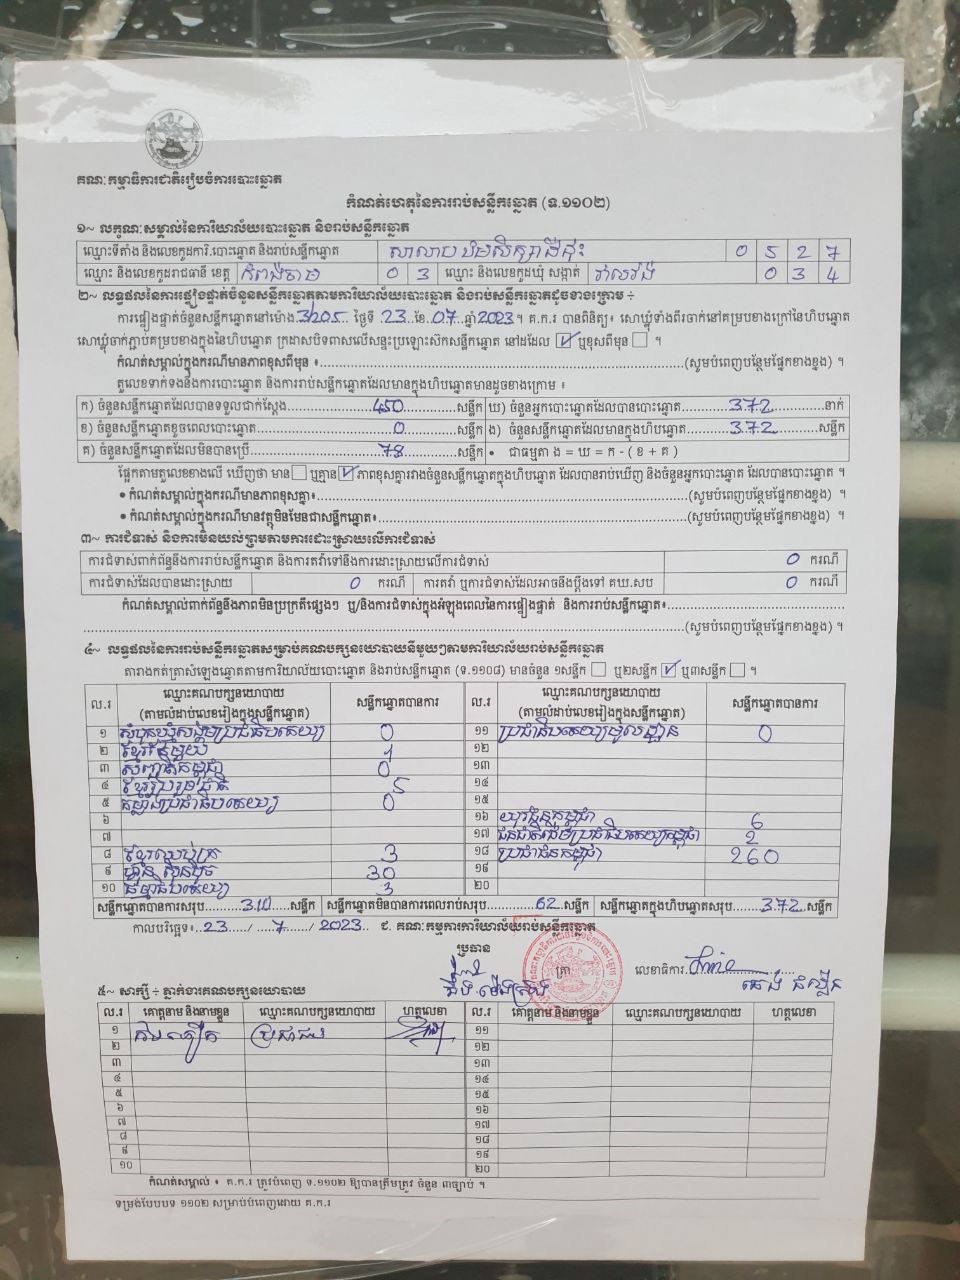 គណៈកម្មាធិការជាតិរៀបចំការបោះឆ្នោត
កំណត់ហេតុនៃការរាប់សន្លឹកឆ្នោត (ទ.១១០២)
១~ លក្ខណៈសម្គាល់នៃការិយាល័យបោះឆ្នោត និងរាប់សន្លឹកឆ្នោត
ឈ្មោះទីតាំង និងលេខកូដការិ.បោះឆ្នោត និងរាប់សន្លឹកឆ្នោត 0 5 2 7
ឈ្មោះ និងលេខកូដរាជធានី ខេត្ត កំពង់ចាម 0 3 ឈ្មោះ និងលេខកូដឃុំ សង្កាត់ 0 3 4
២~ លទ្ធផលនៃការផ្ទៀងផ្ទាត់ចំនួនសន្លឹកឆ្នោតតាមការិយាល័យបោះឆ្នោត និងរាប់សន្លឹកឆ្នោតដូចខាងក្រោម ÷
ការផ្ទៀងផ្ទាត់ចំនួនសន្លឹកឆ្នោតនៅម៉ោង 3:205 ថ្ងៃទី 23 ខែ 07 ឆ្នាំ 2023 ។ គ.ក.រ បានពិនិត្យ៖ សោឃ្លុំទាំងពីរចាក់នៅគម្របខាងក្រៅនៃហិបឆ្នោត
សោឃ្លុំចាក់ភ្ជាប់គម្របខាងក្នុងនៃហិបឆ្នោត ក្រដាសបិទពាសលើសន្ទះប្រឡោះស៊កសន្លឹកឆ្នោត នៅដដែល ☑ ឬខុសពីមុន ☐ ។
កំណត់សម្គាល់ក្នុងករណីមានភាពខុសពីមុន ÷ (សូមបំពេញបន្ថែមផ្នែកខាងខ្នង) ។
តួលេខទាក់ទងនឹងការបោះឆ្នោត និងការរាប់សន្លឹកឆ្នោតដែលមានក្នុងហិបឆ្នោតមានដូចខាងក្រោម ៖
ក) ចំនួនសន្លឹកឆ្នោតដែលបានទទួលជាក់ស្តែង 450 សន្លឹក ឃ) ចំនួនអ្នកបោះឆ្នោតដែលបានបោះឆ្នោត 372 នាក់
ខ) ចំនួនសន្លឹកឆ្នោតខូចពេលបោះឆ្នោត 0 សន្លឹក ង) ចំនួនសន្លឹកឆ្នោតដែលមានក្នុងហិបឆ្នោត 372 សន្លឹក
គ) ចំនួនសន្លឹកឆ្នោតដែលមិនបានប្រើ 78 សន្លឹក • ជាធម្មតា ង = ឃ = ក - ( ខ + គ )
ផ្អែកតាមតួលេខខាងលើ ឃើញថា មាន ☐ ឬគ្មាន ☑ ភាពខុសគ្នារវាងចំនួនសន្លឹកឆ្នោតក្នុងហិបឆ្នោត ដែលបានរាប់ឃើញ និងចំនួនអ្នកបោះឆ្នោត ដែលបានបោះឆ្នោត ។
• កំណត់សម្គាល់ក្នុងករណីមានភាពខុសគ្នា៖ (សូមបំពេញបន្ថែមផ្នែកខាងខ្នង) ។
• កំណត់សម្គាល់ក្នុងករណីមានវត្ថុមិនមែនជាសន្លឹកឆ្នោត៖ (សូមបំពេញបន្ថែមផ្នែកខាងខ្នង) ។
៣~ ការជំទាស់ និងការមិនយល់ព្រមតាមការដោះស្រាយលើការជំទាស់
ការជំទាស់ពាក់ព័ន្ធនឹងការរាប់សន្លឹកឆ្នោត និងការតវ៉ាទៅនឹងការដោះស្រាយលើការជំទាស់ 0 ករណី
ការជំទាស់ដែលបានដោះស្រាយ 0 ករណី ការតវ៉ា ឬការជំទាស់ដែលអាចនឹងប្តឹងទៅ គឃ.សប 0 ករណី
កំណត់សម្គាល់ពាក់ព័ន្ធនឹងភាពមិនប្រក្រតីផ្សេងៗ ឬ/និងការជំទាស់ក្នុងអំឡុងពេលនៃការផ្ទៀងផ្ទាត់ និងការរាប់សន្លឹកឆ្នោត៖
(សូមបំពេញបន្ថែមផ្នែកខាងខ្នង) ។
៤~ លទ្ធផលនៃការរាប់សន្លឹកឆ្នោតសម្រាប់គណបក្សនយោបាយនីមួយៗតាមការិយាល័យរាប់សន្លឹកឆ្នោត
តារាងកត់ត្រាសំឡេងឆ្នោតតាមការិយាល័យបោះឆ្នោត និងរាប់សន្លឹកឆ្នោត (ទ.១១០៨) មានចំនួន ១សន្លឹក ☐ ឬ២សន្លឹក ☑ ឬ៣សន្លឹក ☐ ។
ល.រ ឈ្មោះគណបក្សនយោបាយ (តាមលំដាប់លេខរៀងក្នុងសន្លឹកឆ្នោត) សន្លឹកឆ្នោតបានការ ល.រ ឈ្មោះគណបក្សនយោបាយ (តាមលំដាប់លេខរៀងក្នុងសន្លឹកឆ្នោត) សន្លឹកឆ្នោតបានការ
១ សំបុកឃ្មុំសង្គមប្រជាធិបតេយ្យ 0 ១១ ប្រជាធិបតេយ្យមូលដ្ឋាន 0
២ ខ្មែរតែមួយ 1 ១២
៣ សញ្ជាតិកម្ពុជា 0 ១៣
៤ ខ្មែររួបរួមជាតិ 5 ១៤
៥ កម្លាំងប្រជាធិបតេយ្យ 0 ១៥
៦ ១៦ យុវជនកម្ពុជា 6
៧ ១៧ ជនជាតិដើមប្រជាធិបតេយ្យកម្ពុជា 2
៨ ខ្មែរឈប់ក្រ 3 ១៨ ប្រជាជនកម្ពុជា 260
៩ ហ្វ៊ុនស៊ិនប៉ិច 30 ១៩
១០ ធម្មាធិបតេយ្យ 3 ២០
សន្លឹកឆ្នោតបានការសរុប 310 សន្លឹក សន្លឹកឆ្នោតមិនបានការពេលរាប់សរុប 62 សន្លឹក សន្លឹកឆ្នោតក្នុងហិបឆ្នោតសរុប 372 សន្លឹក
កាលបរិច្ឆេទ៖ 23 / 7 / 2023 ជ. គណៈកម្មការការិយាល័យរាប់សន្លឹកឆ្នោត
ប្រធាន
ត្រា លេខាធិការ
៥~ សាក្សី ÷ ភ្នាក់ងារគណបក្សនយោបាយ
ល.រ គោត្តនាម និងនាមខ្លួន ឈ្មោះគណបក្សនយោបាយ ហត្ថលេខា ល.រ គោត្តនាម និងនាមខ្លួន ឈ្មោះគណបក្សនយោបាយ ហត្ថលេខា
១ ប្រជាជន ១១
២ ១២
៣ ១៣
៤ ១៤
៥ ១៥
៦ ១៦
៧ ១៧
៨ ១៨
៩ ១៩
១០ ២០
កំណត់សម្គាល់ ៖ គ.ក.រ ត្រូវបំពេញ ទ.១១០២ ឱ្យបានត្រឹមត្រូវ ចំនួន ៣ច្បាប់ ។
ទម្រង់បែបបទ ១១០២ សម្រាប់បំពេញដោយ គ.ក.រ